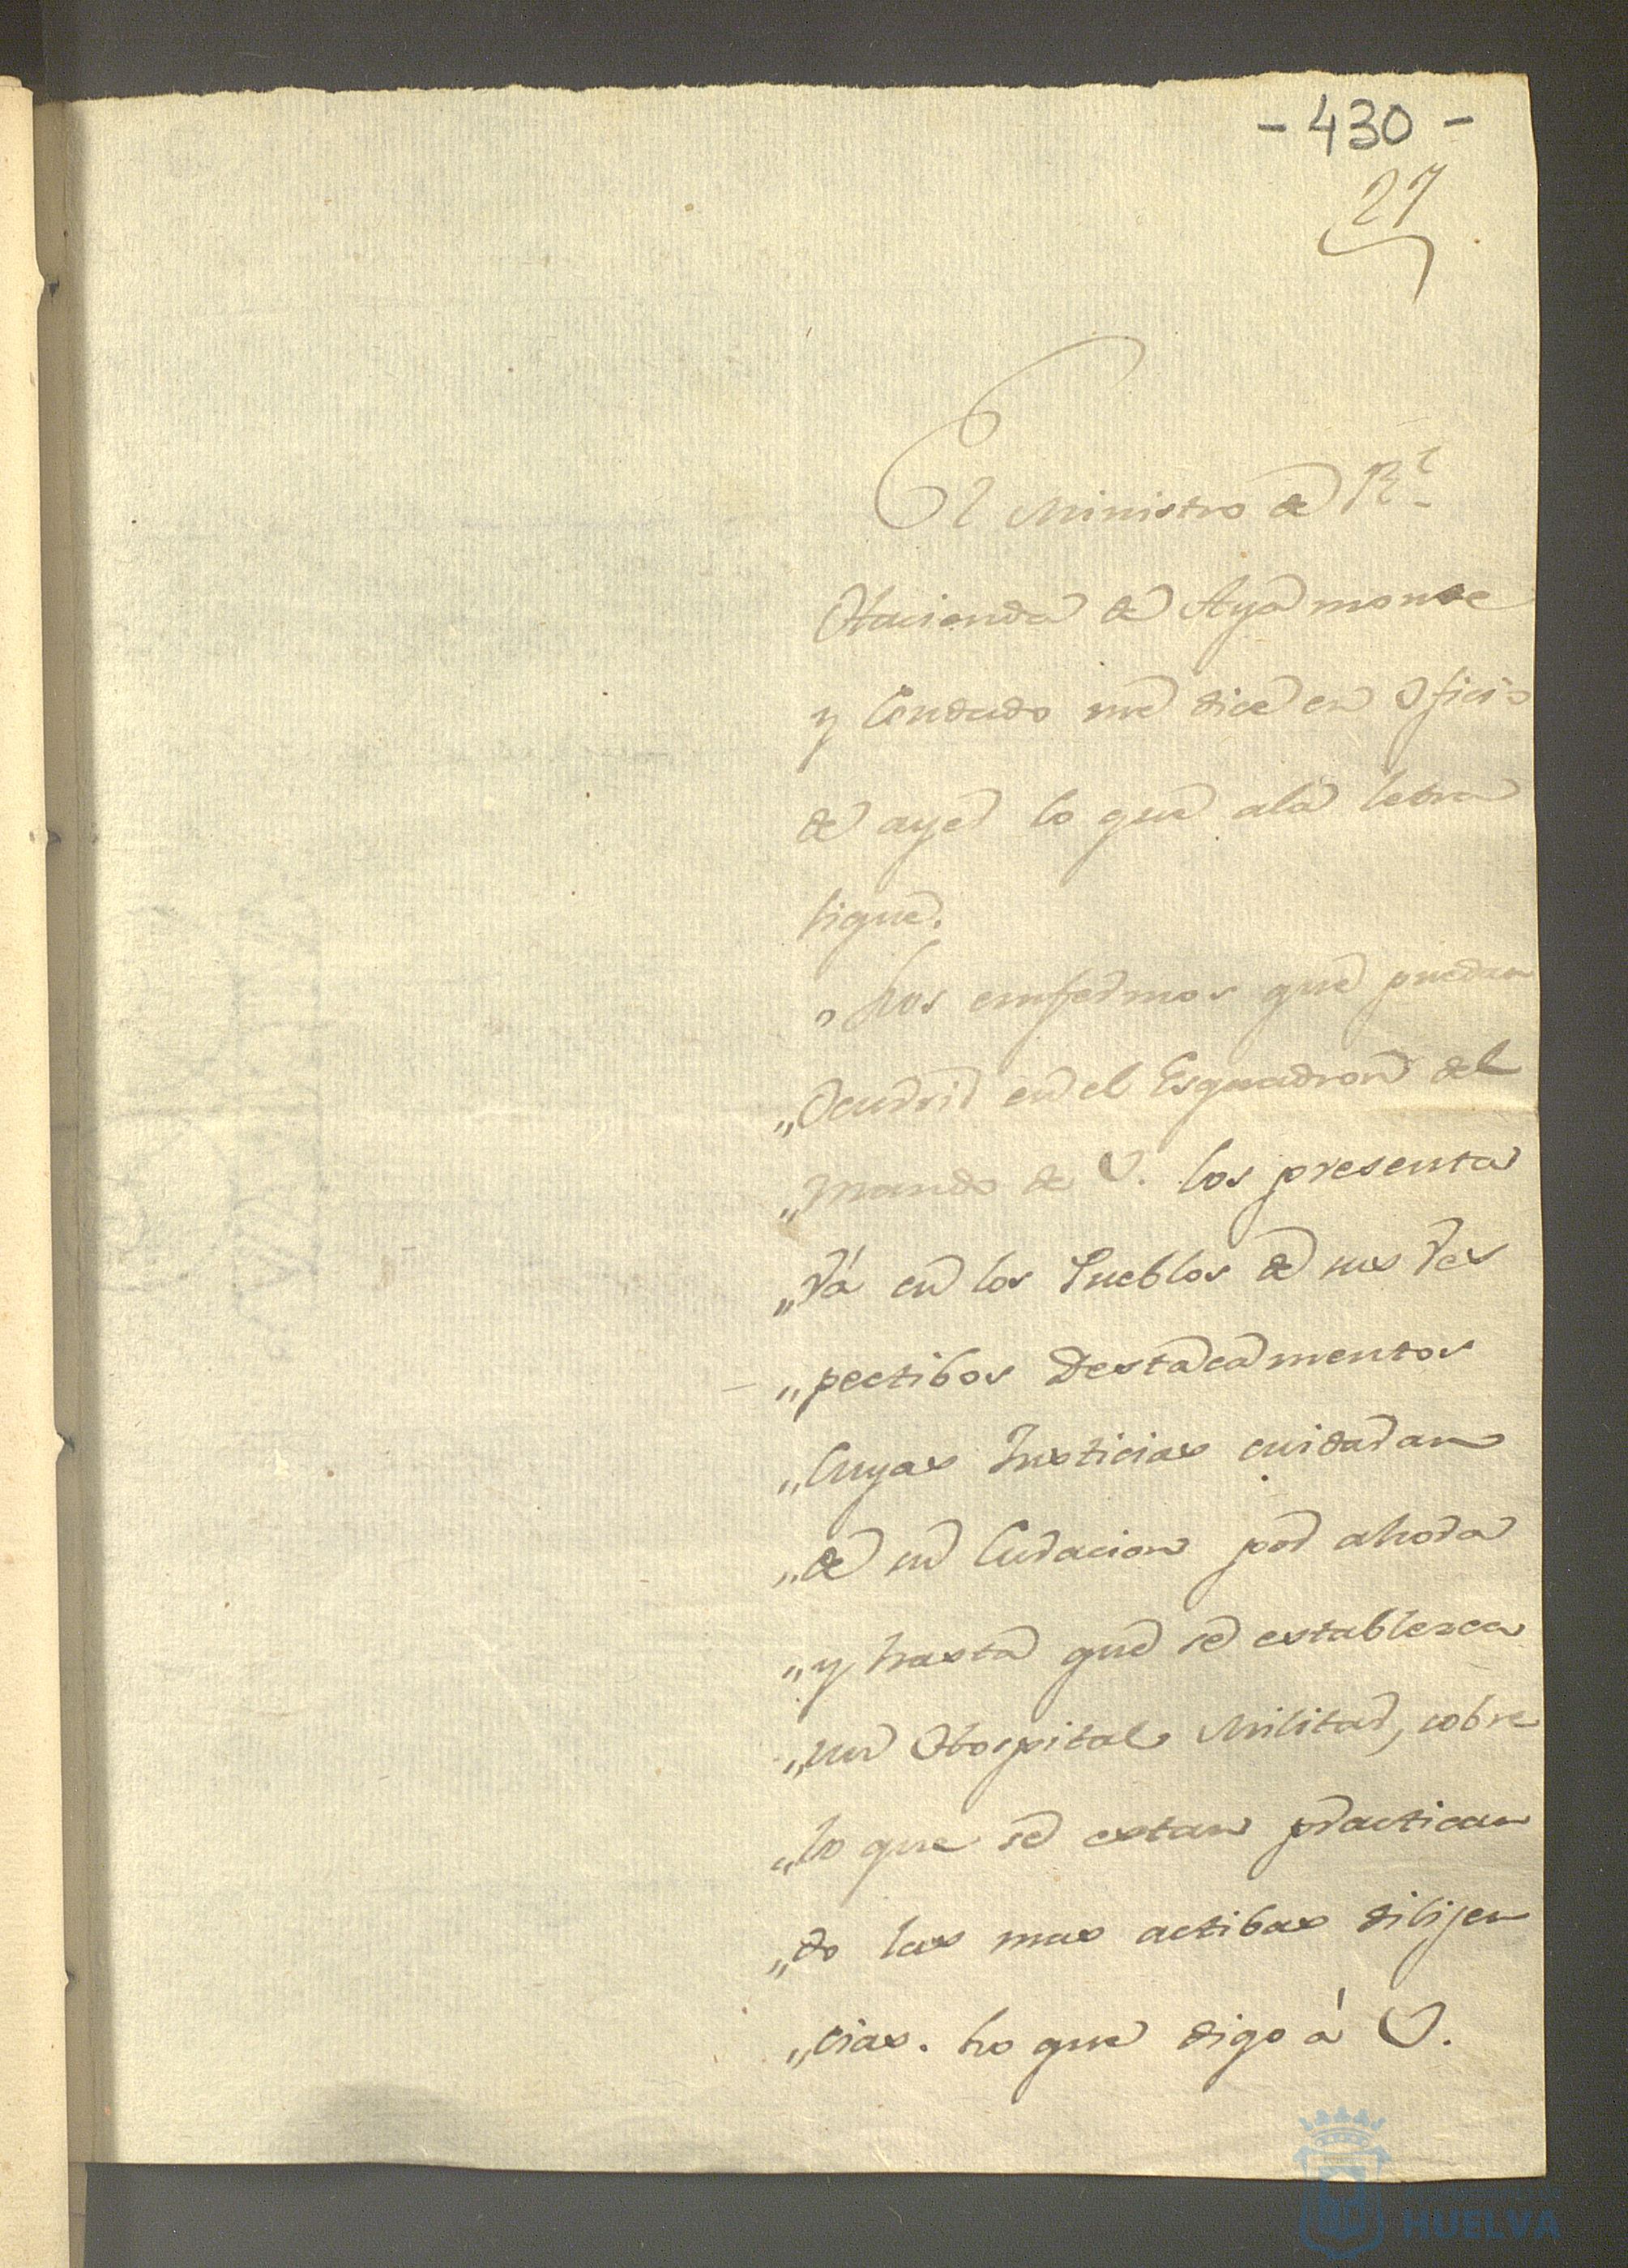 - 430 -
27
El Ministro de Rl.
Hacienda de Ayamonte
y Condado me dice en Oficio
de ayer lo que ala letra
sigue.
„ Los enfermos que puedan
„ Ocurrir en el Esquadron del
„ mando de V. los presenta
„ rá en los Pueblos de sus res
„ pectibos Destacamentos
„ Cuyas Justicias cuidaran
„ de su Curacion por ahora
„ y hasta que se establesca
„ un Hospital Militar, sobre
„ lo que se estan practican
„ do las mas actibas dilijen
„ cias. Lo que digo á V.
HUELVA